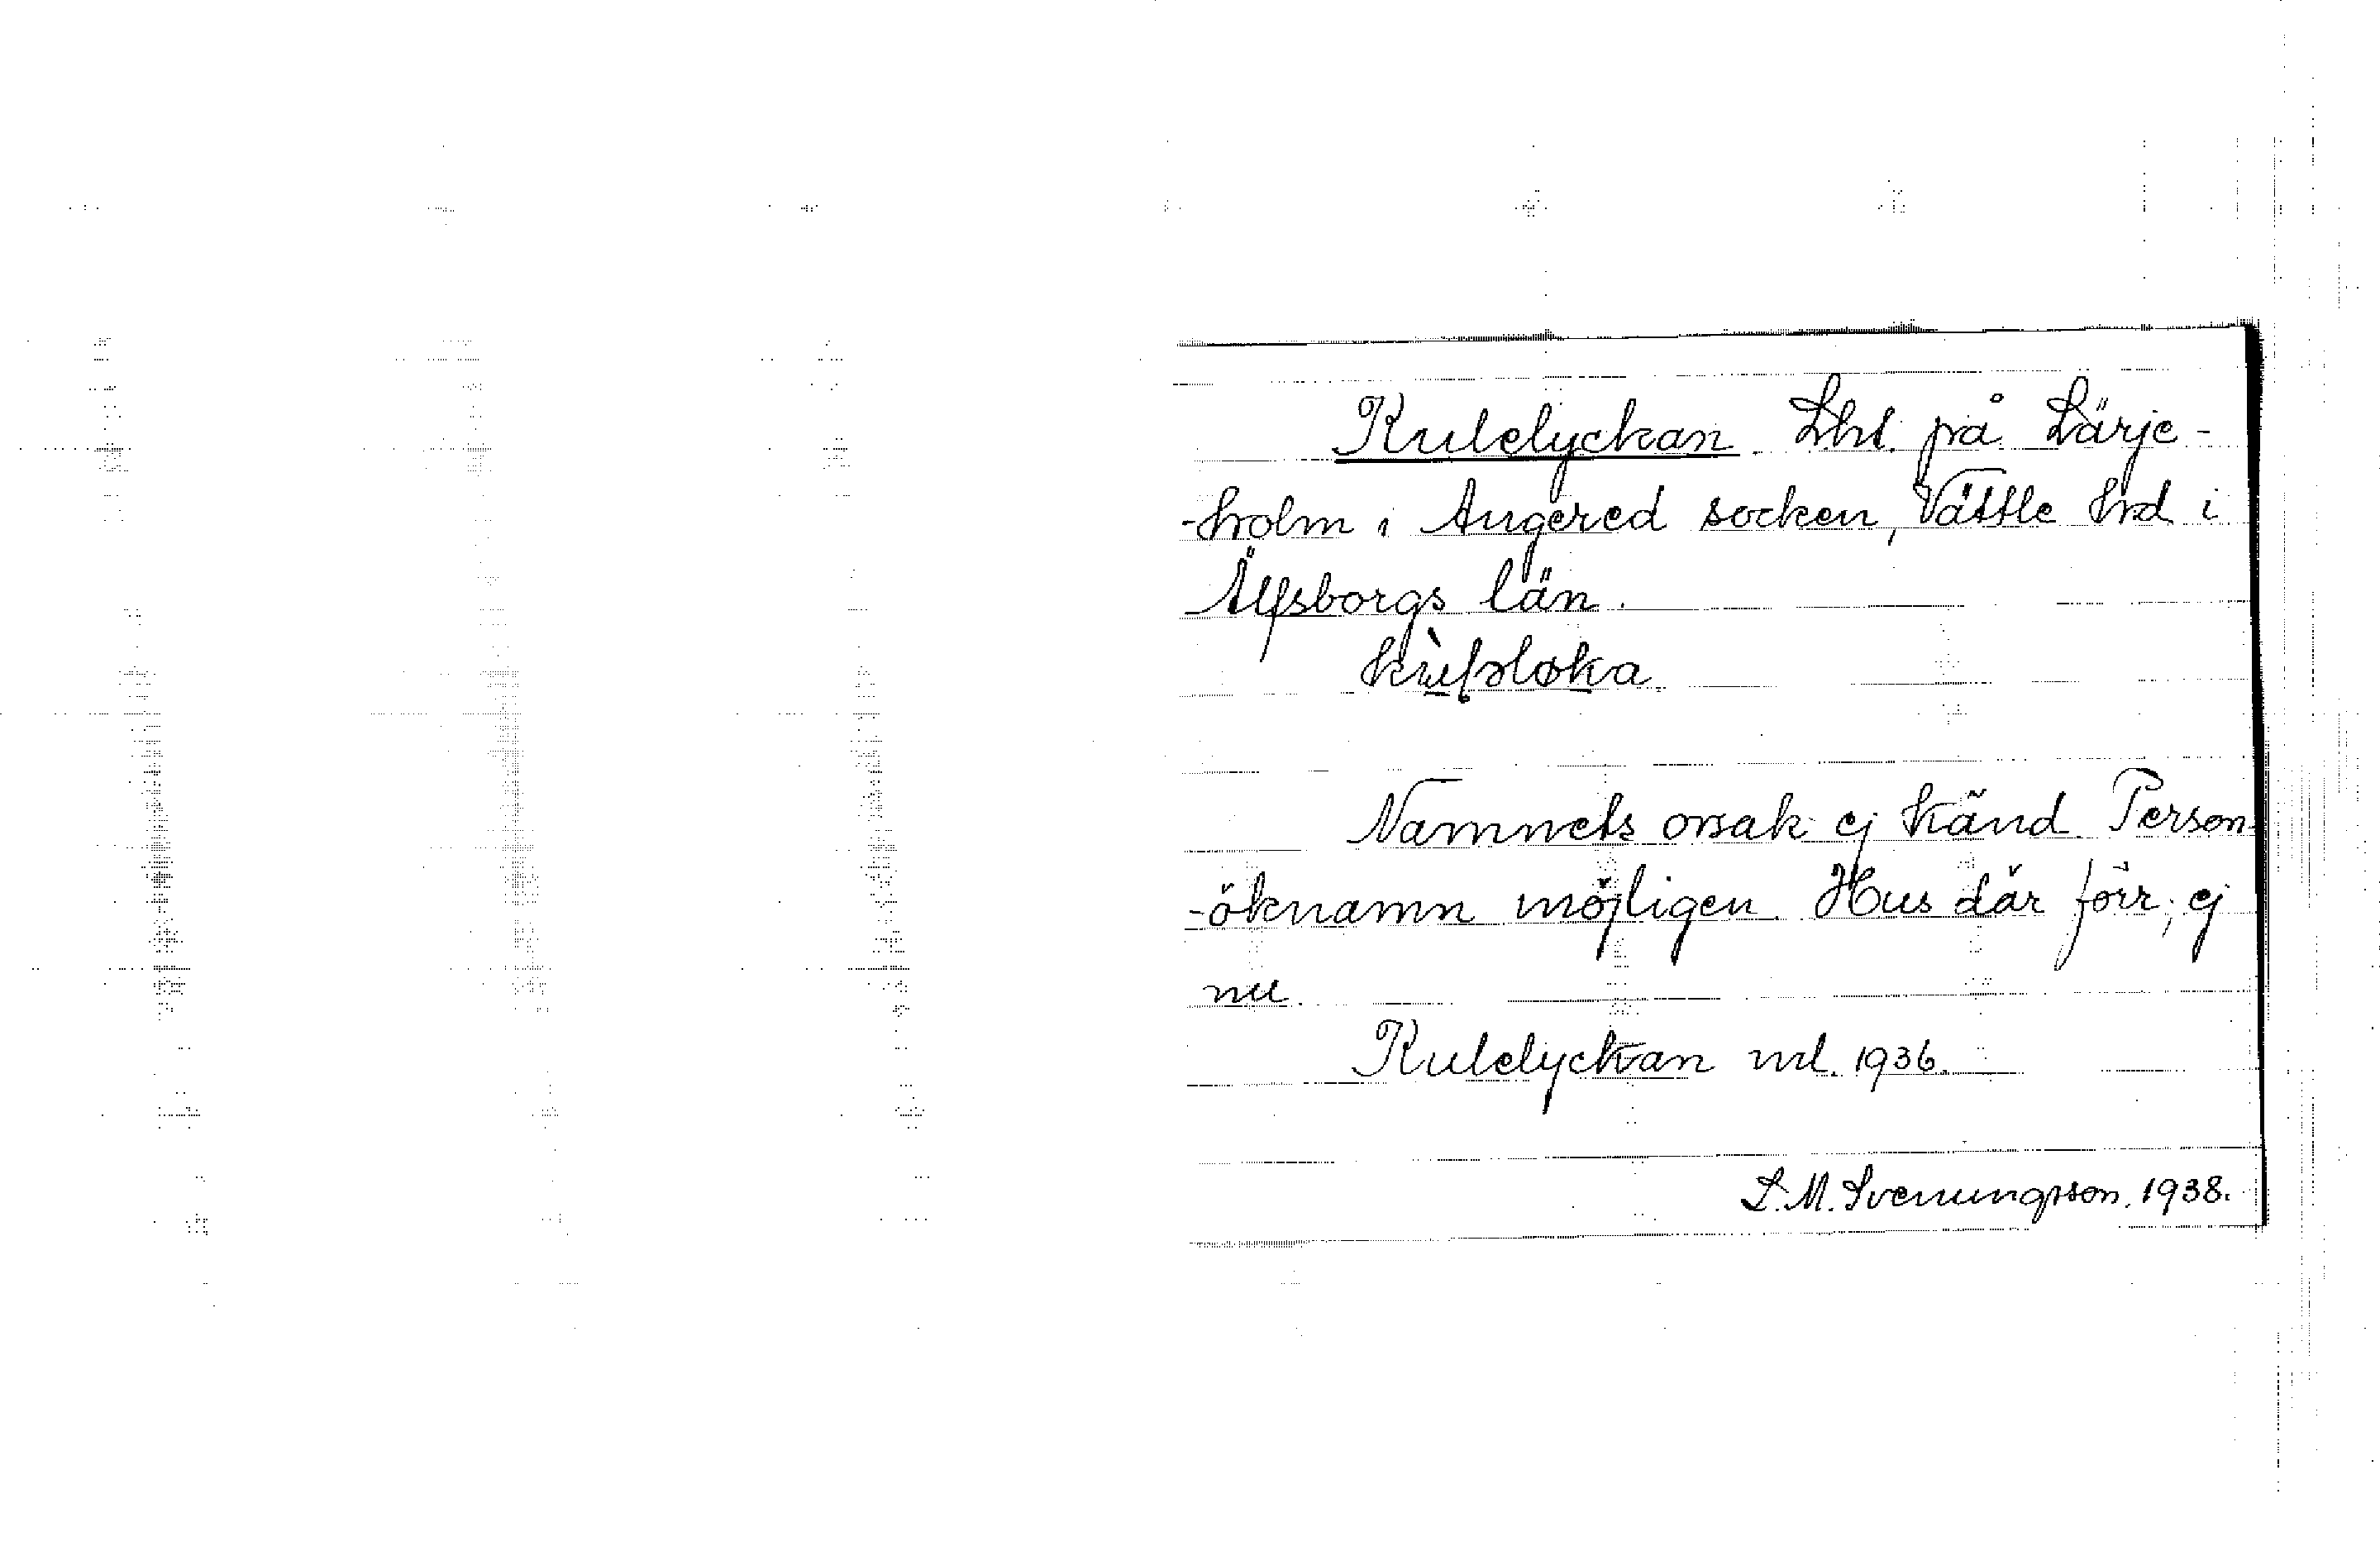 Kulelyckan. Lht. på Lärje-
-holm i Angered socken, Vättle hrd i
Älfsborgs län.
Namnets orsak ej känd. Person-
-öknamn möjligen. Hus där förr; ej
nu.
Kulelyckan url. 1936.
S. M. Svenungsson. 1938.